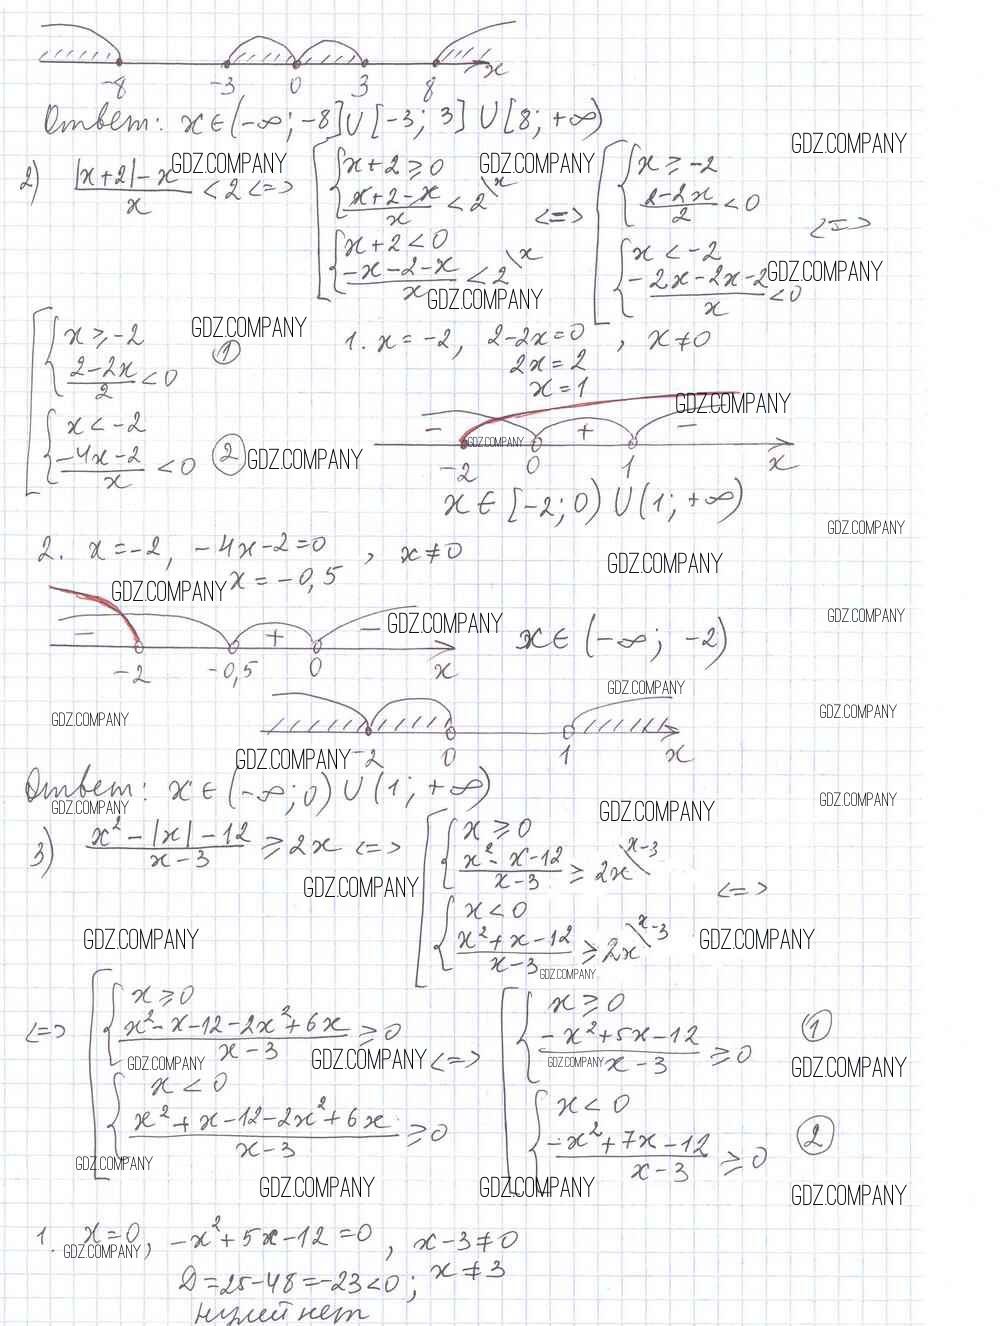 -8 -3 0 3 8 x
Ответ: x∈(-∞; -8]∪[-3; 3]∪[8; +∞)
2) (|x+2|-x)/x < 2 <=> [ { x+2⩾0 ; (x+2-x)/x < 2\x ; { x+2<0 ; (-x-2-x)/x < 2\x <=> [ { x⩾-2 ; (2-2x)/2 < 0 ; { x<-2 ; (-2x-2x-2)/x < 0 <=>
GDZ.COMPANY GDZ.COMPANY GDZ.COMPANY
GDZ.COMPANY GDZ.COMPANY
[ { x⩾-2 ; (2-2x)/2 < 0 ① GDZ.COMPANY
{ x<-2 ; (-4x-2)/x < 0 ② GDZ.COMPANY
1. x=-2, 2-2x=0, x≠0
2x=2
x=1
GDZ.COMPANY
- + -
GDZ.COMPANY
-2 0 1 x
x∈[-2; 0)∪(1; +∞)
GDZ.COMPANY
2. x=-2, -4x-2=0, x≠0
GDZ.COMPANY
GDZ.COMPANY x=-0,5
- + - GDZ.COMPANY
GDZ.COMPANY
-2 -0,5 0 x
x∈(-∞; -2)
GDZ.COMPANY
GDZ.COMPANY GDZ.COMPANY
GDZ.COMPANY -2 0 1 x
Ответ: x∈(-∞; 0)∪(1; +∞)
GDZ.COMPANY GDZ.COMPANY GDZ.COMPANY
3) (x²-|x|-12)/(x-3) ⩾ 2x <=> [ { x⩾0 ; (x²-x-12)/(x-3) ⩾ 2x\x-3 ; { x<0 ; (x²+x-12)/(x-3) ⩾ 2x\x-3 <=>
GDZ.COMPANY
GDZ.COMPANY GDZ.COMPANY
GDZ.COMPANY
<=> [ { x⩾0 ; (x²-x-12-2x²+6x)/(x-3) ⩾ 0 ; { x<0 ; (x²+x-12-2x²+6x)/(x-3) ⩾ 0 <=> [ { x⩾0 ; (-x²+5x-12)/(x-3) ⩾ 0 ① ; { x<0 ; (-x²+7x-12)/(x-3) ⩾ 0 ②
GDZ.COMPANY GDZ.COMPANY GDZ.COMPANY GDZ.COMPANY
GDZ.COMPANY
GDZ.COMPANY GDZ.COMPANY GDZ.COMPANY
1. x=0, -x²+5x-12=0, x-3≠0
GDZ.COMPANY
D=25-48=-23<0; x≠3
нулей нет